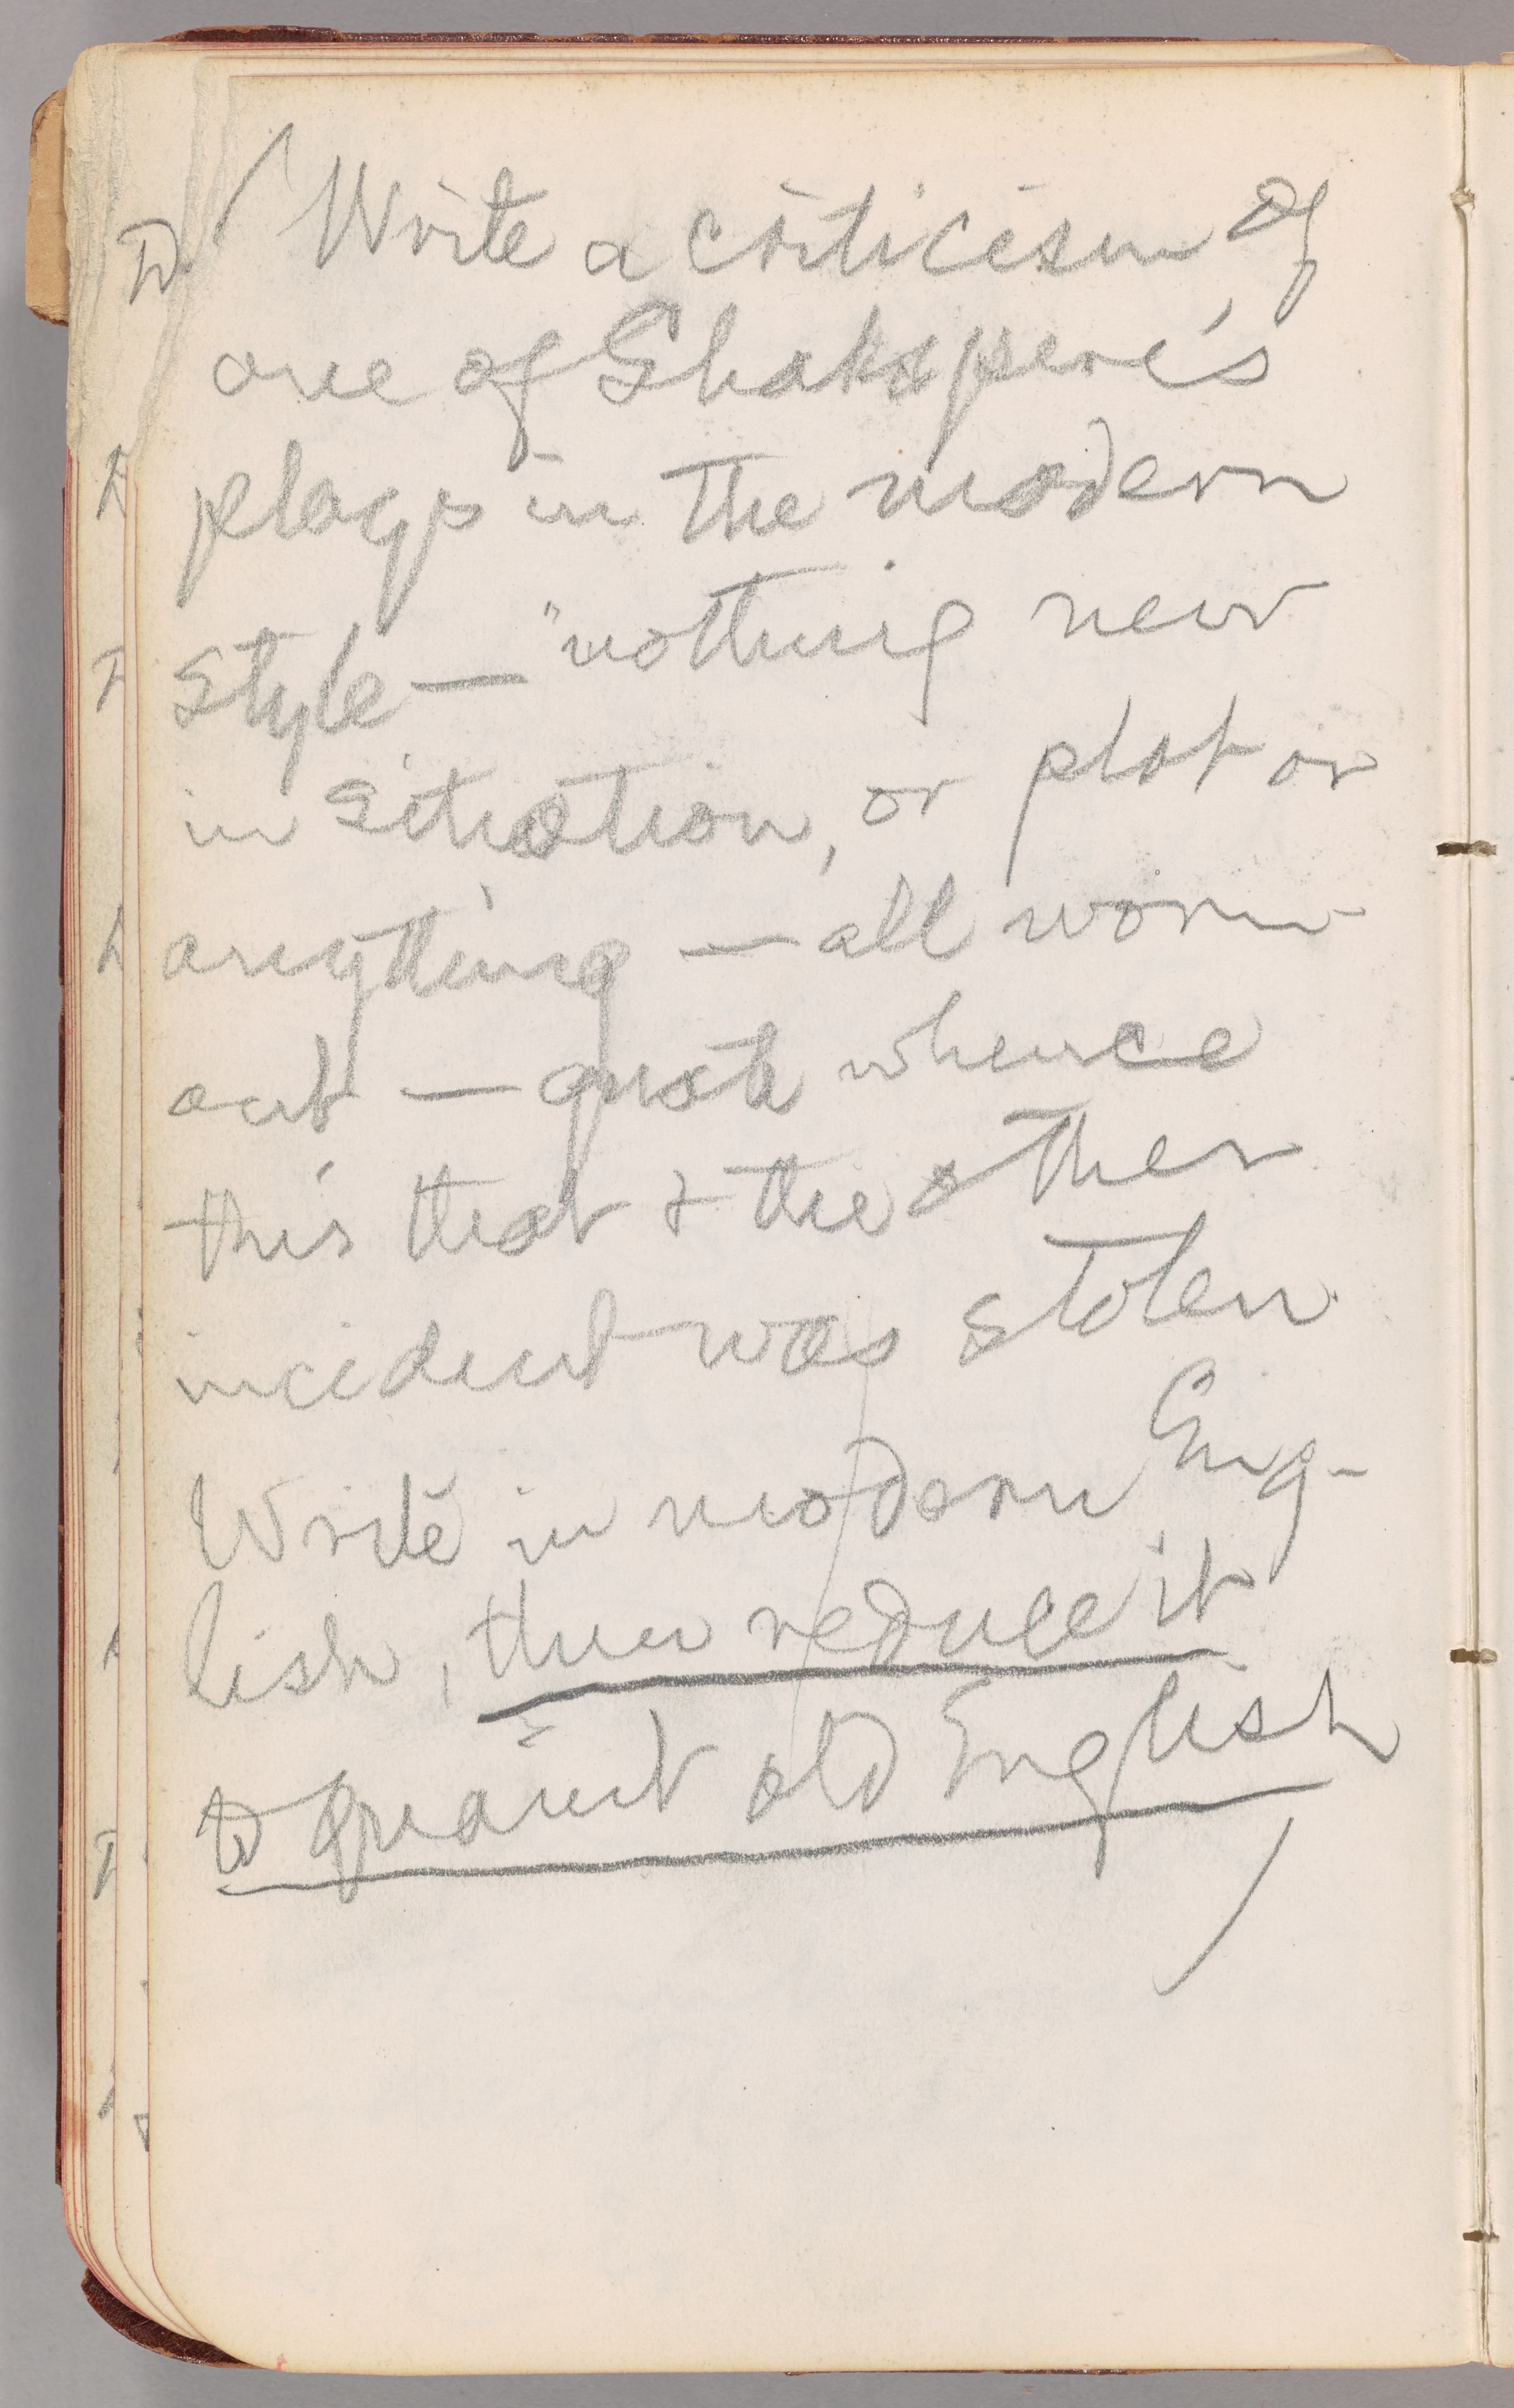 Write a criticism of
one of Shakspere's
plays in the modern
style — "nothing new
in situation, or plot or
anything — all worn
out — quote whence
this that & the other
incident was stolen
Write in modern Eng-
lish, then reduce it
to quaint old English